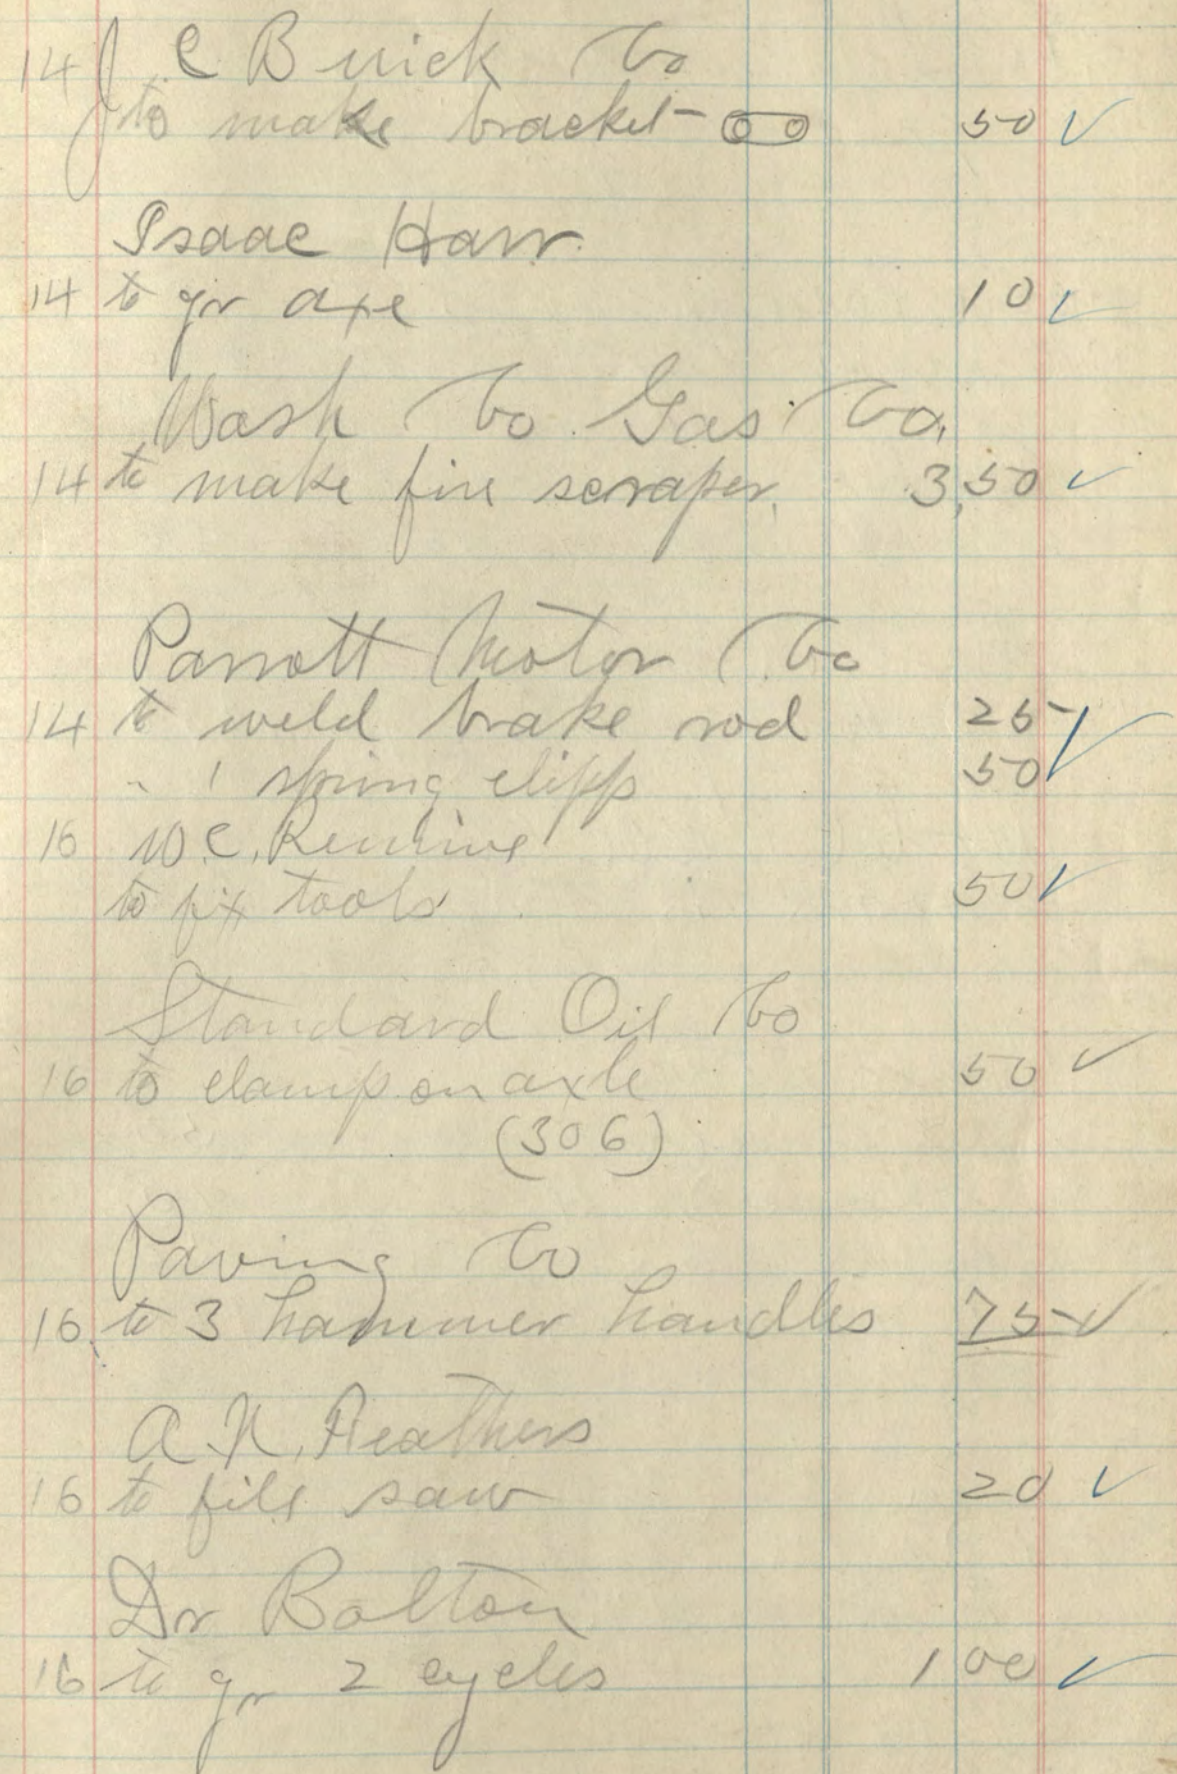 14 J C Buick Co
to make bracket 50 ✓
Isaac Harr
14 to gr axe 10 ✓
Wash Co Gas Co.
14 to make fire scraper. 3,50 ✓
Parrott Motor Co
14 to weld brake rod 25
" 1 spring clipp 50 ✓
16 W.C.
to fix tools 50 ✓
Standard Oil Co
16 to clamp on axle 50 ✓
(306)
Paving Co
16 to 3 hammer handles 75 ✓
A. N. Feathers
16 to file saw 20 ✓
Dr Bolton
16 to gr 2 cycles 1 00 ✓